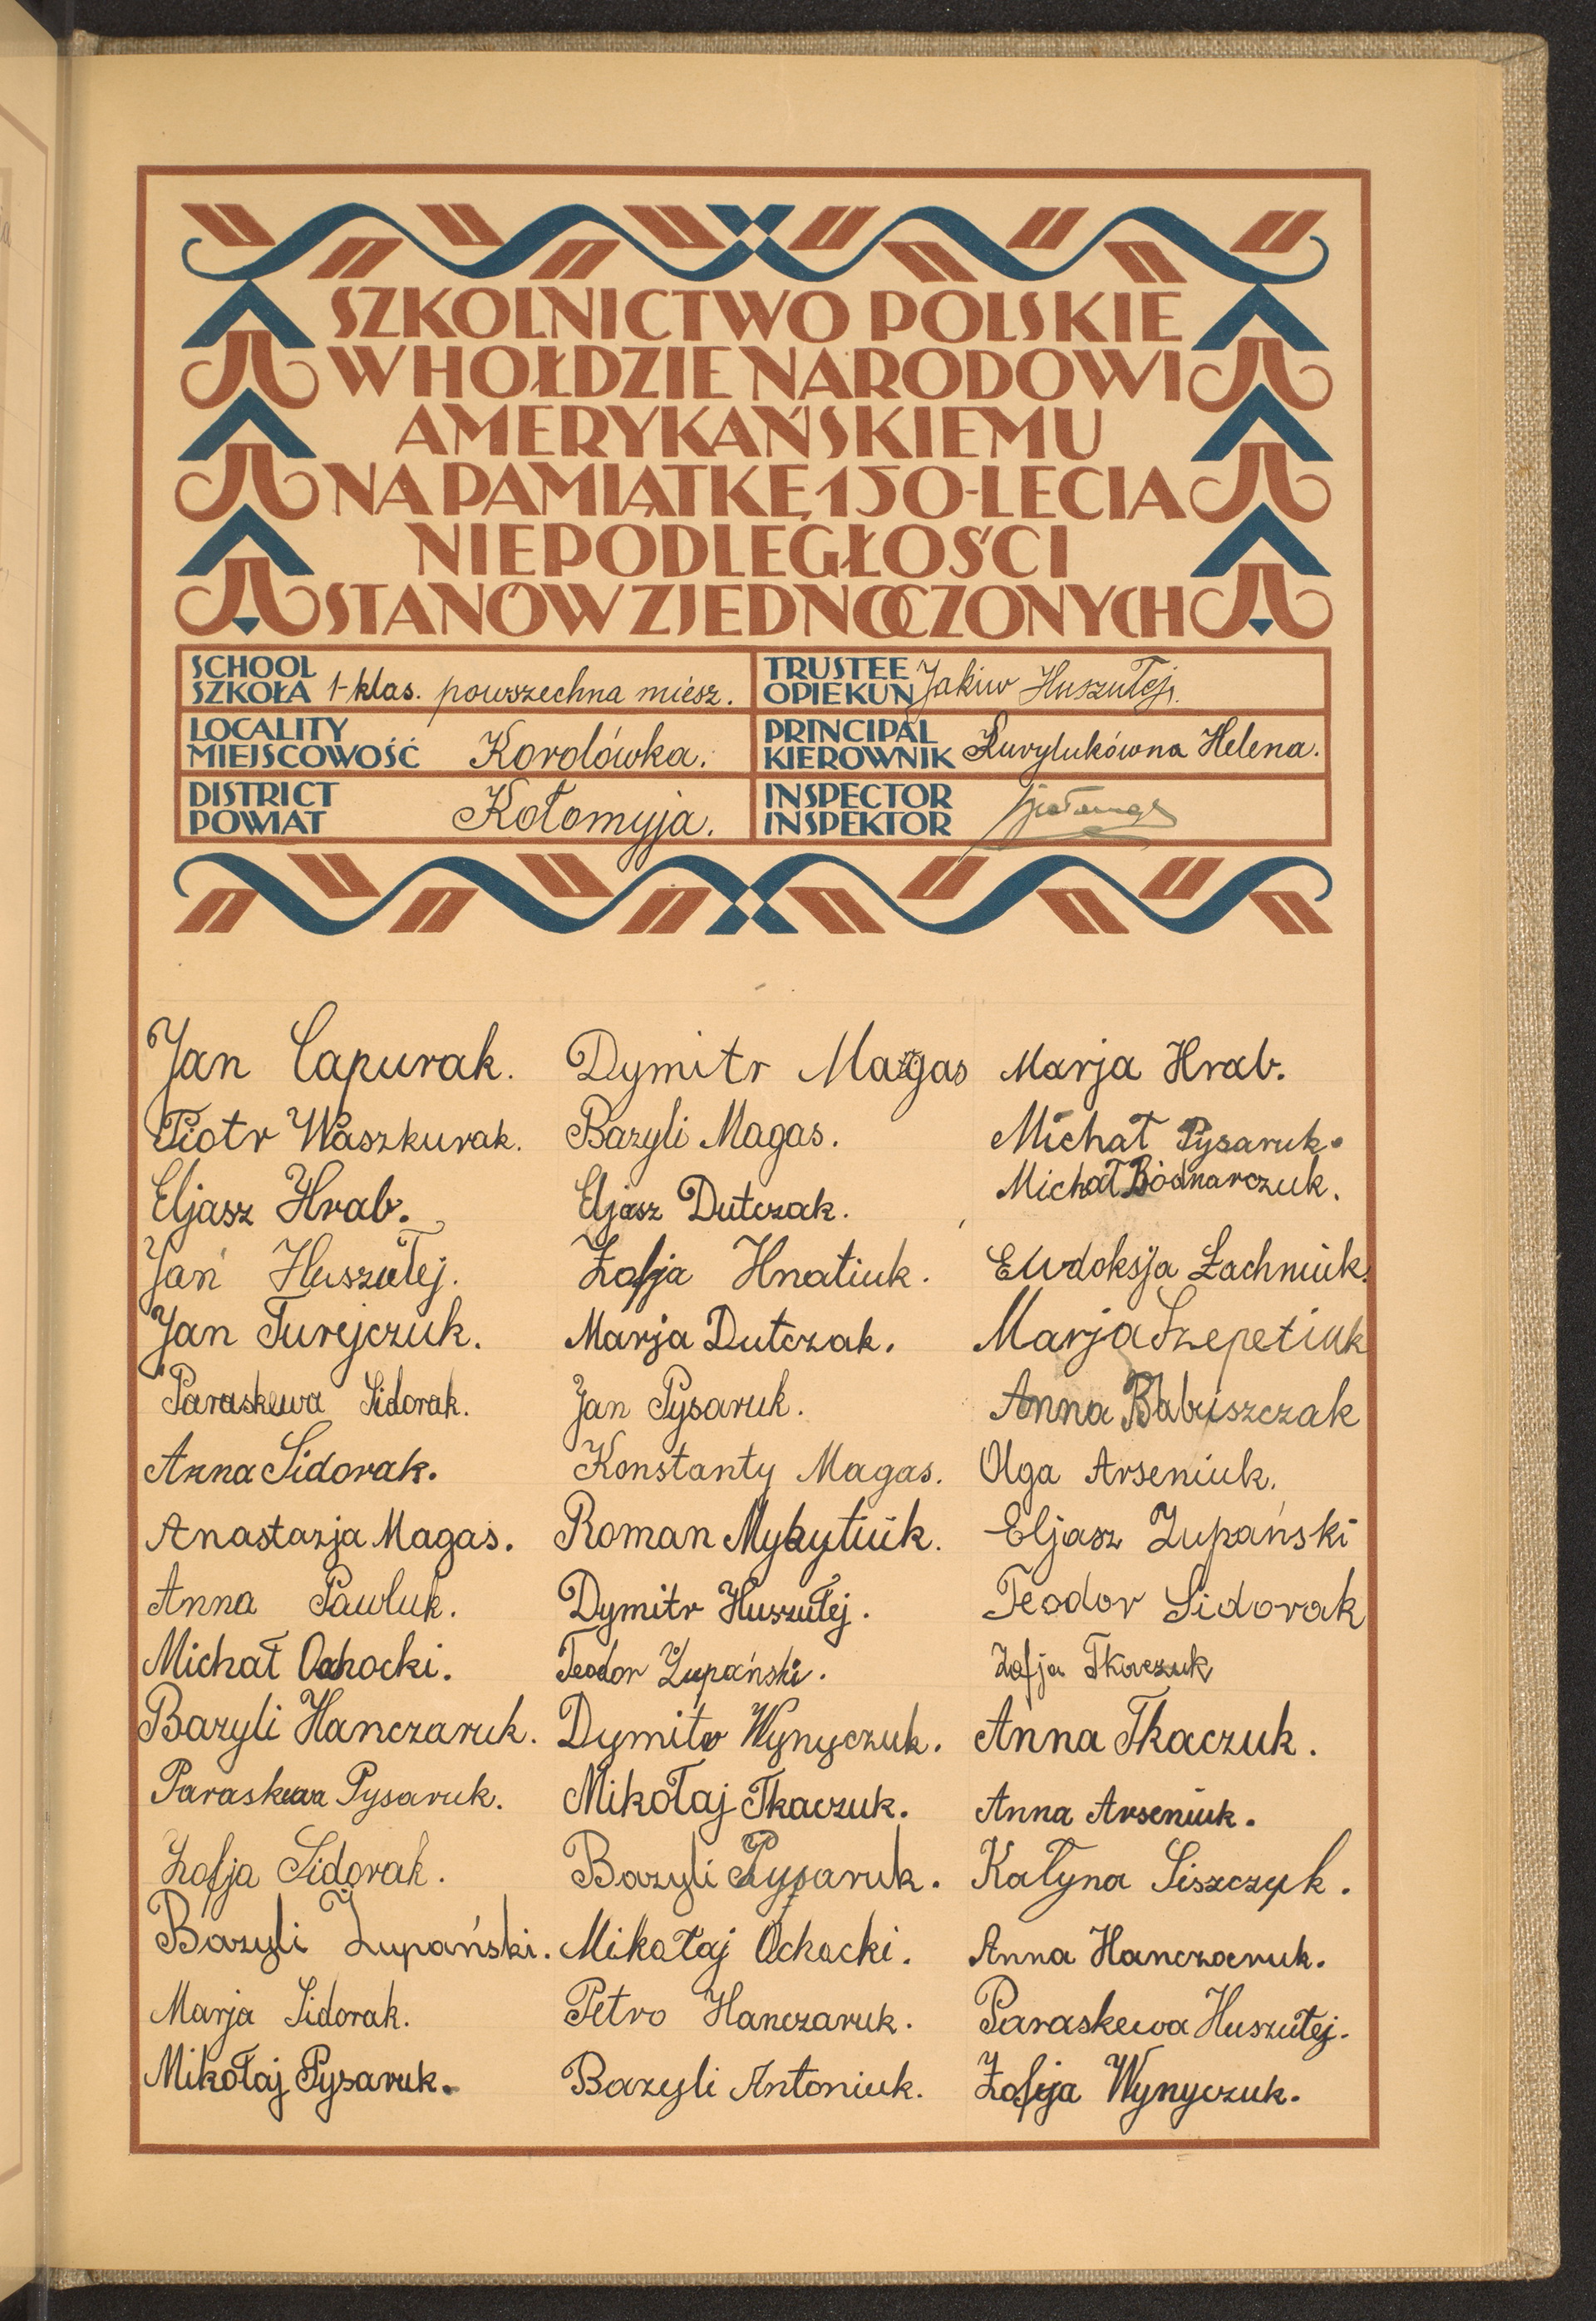 SZKOLNICTWO POLSKIE
W HOŁDZIE NARODOWI
AMERYKAŃSKIEMU
NA PAMIĄTKĘ 150-LECIA
NIEPODLEGŁOŚCI
STANÓW ZJEDNOCZONYCH
SCHOOL
SZKOŁA 1-klas. powszechna miesz.
TRUSTEE
OPIEKUN Jakiw Huszułej.
LOCALITY
MIEJSCOWOŚĆ Korolówka.
PRINCIPAL
KIEROWNIK Kurylukówna Helena.
DISTRICT
POWIAT Kołomyja.
INSPECTOR
INSPEKTOR
Jan Capurak.
Piotr Waszkurak.
Eljasz Hrab.
Jan Huszułej.
Jan Turejczuk.
Paraskewa Sidorak.
Anna Sidorak.
Anastazja Magas.
Anna Pawluk.
Michał Ochocki.
Bazyli Hanczaruk.
Paraskewa Pysaruk.
Zofja Sidorak.
Bazyli Żupański.
Marja Sidorak.
Mikołaj Pysaruk.
Dymitr Magas
Bazyli Magas.
Eljasz Dutczak.
Zofja Hnatiuk.
Marja Dutczak.
Jan Pysaruk.
Konstanty Magas.
Roman Mykytiuk.
Dymitr Huszułej.
Teodor Żupański.
Dymitr Wynyczuk.
Mikołaj Tkaczuk.
Bazyli Pysaruk.
Mikołaj Ochocki.
Petro Hanczaruk.
Bazyli Antoniuk.
Marja Hrab.
Michał Pysaruk.
Michał Bodnarczuk.
Ewdoksja Łachniuk.
Marja Szepetiuk
Anna Babiszczak
Olga Arseniuk.
Eljasz Żupański
Teodor Sidorak
Zofja Tkaczuk
Anna Tkaczuk.
Anna Arseniuk.
Kałyna Siszczyk.
Anna Hanczaruk.
Paraskewa Huszułej.
Zofija Wynyczuk.